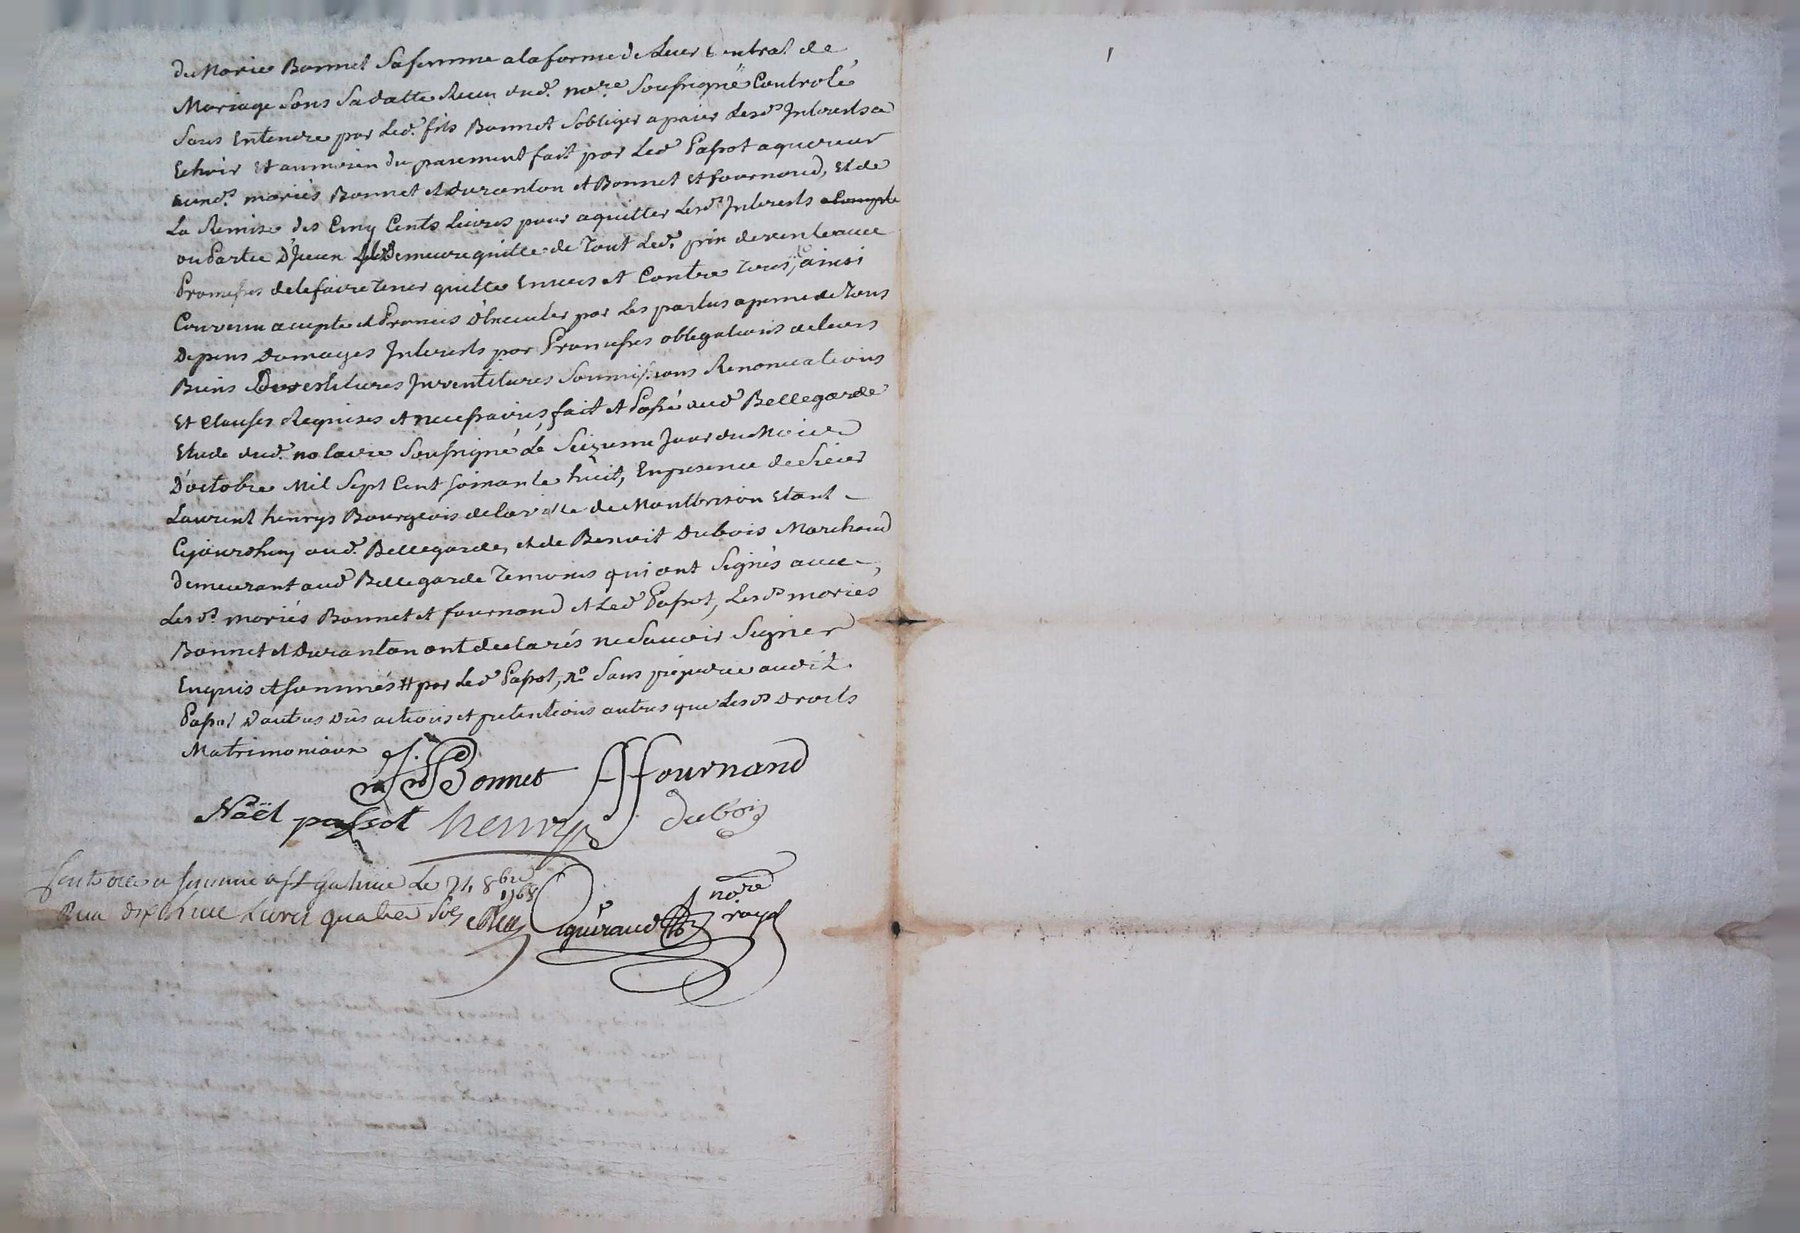 de Marie Bonnet sa femme a la forme de leur Contrat de
Mariage sous sa datte Receu dud.t no.re soussigné Controlé
sans Entendre par Led.t fils Bonnet sobliger a paier Lesd.s Interests a
Echoir Et au moien du paiement fait par Led.t Passot aquereur
auxd.s mariés Bonnet et duranton et Bonnet et fournand, Et de
La Remise des Cinq Cents Livres pour aquitter Lesd.s Interests
ou Partie D'Iceux Demeure quitte de Tout Led.t prix de vente avec
Promesses de le faire Tenir quitte Envers et Contre Tous, ainsi
Convenu accepté et Promis D'Executer par Les parties a peine de Tous
Depens Domages Interests par Promesses obligations de leurs
Biens Devestitures Investitures Soumissions Renonciations
Et Clauses Requises et necessaires, fait et Passé aud.t Bellegarde
Etude dud.t notaire soussigné Le Seizieme Jour du Mois
D'octobre Mil Sept Cent soixante huit, En presence de Sieur
Laurent henrys Bourgeois de la ville de Montbrison Etant
Cejourdhuy aud.t Bellegarde, et de Benoit Dubois Marchand
Demeurant aud.t Bellegarde Temoins qui ont Signés avec
Lesd.s mariés Bonnet et fournand et Led.t Passot, Lesd.s mariés
Bonnet et Duranton ont declarés ne Savoir Signer
Enquis et sommés # par Led.t Passot, Sans prejudice audit
Passot D'autres Dus actions et pretentions autres que Lesd.s Droits
Matrimoniaux
Bonnet fournand
Noël passot henrys Dubois
Controllé a St Galmier Le 24 8bre 1768
Reçu dix neuf Livres quatre Sols
no.re royal